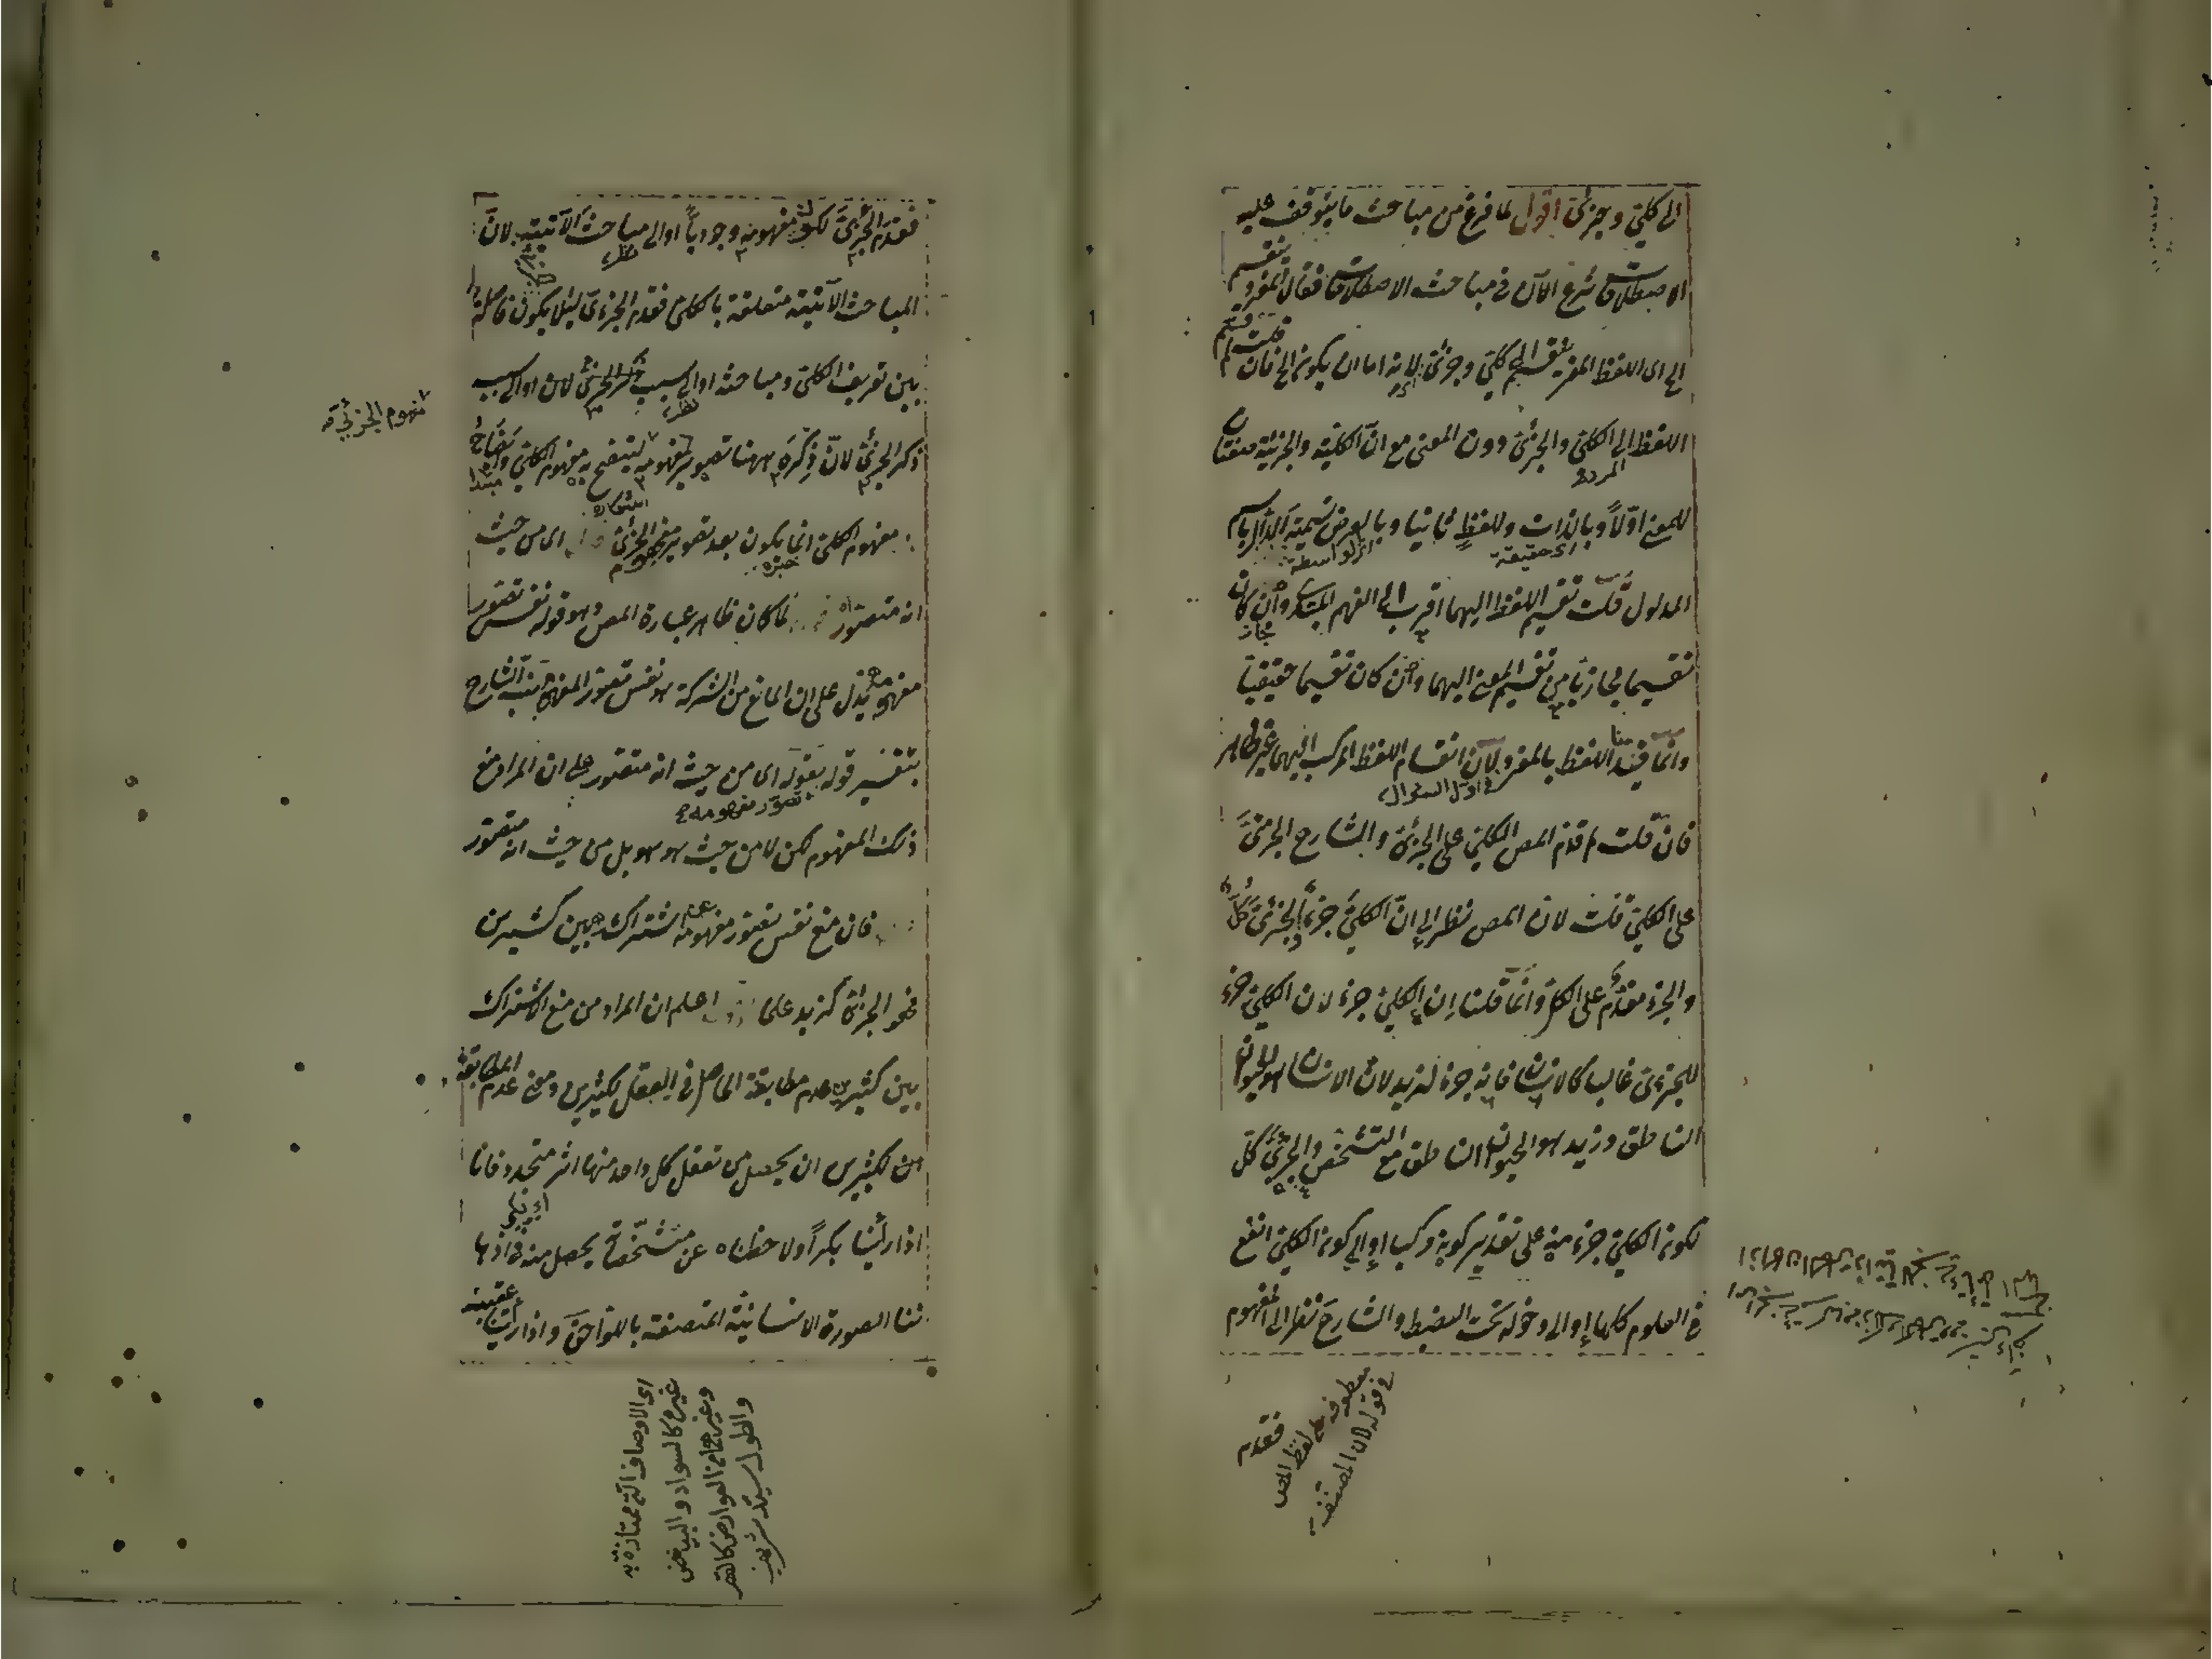 الى كلي وجزئي اقول لما فرغ من مباحث ما يتوقف عليه
الاصطلاحات شرع الآن في مباحث الاصطلاحات فقال المفرد ينقسم
الخ اى اللفظ المفرد ينقسم الى كلي وجزئي لانه اما ان يكون الخ فان قلت لم قسم
اللفظ الى الكلي والجزئي دون المعنى مع ان الكلية والجزئية صفتان
للمعنى اولاً وبالذات وللفظ ثانيا وبالعرض تسمية الدال باسم
المدلول قلت تقسيم اللفظ اليهما اقرب الى الفهم المبتدى وان كان
تقسيما مجازيا من تقسيم المعنى اليهما وان كان تقسيما حقيقيا
وانما قيد اللفظ بالمفرد لان انقسام اللفظ المركب اليهما غير ظاهر
فان قلت لم قدم المص الكلي على الجزئي والشارح الجزئي
على الكلي قلت لان المص نظر الى ان الكلي جزء الجزئي كل
والجزء مقدم على الكل وانما قلنا ان الكلي جزء لان الكلي جزء
للجزئي غالبا كالانسان فانه جزء لزيد لان الانسان هو الحيوان
الناطق وزيد هو الحيوان الناطق مع التشخص والجزئي كل
لكون الكلي جزء منه على تقدير كونه مركبا او الى كون الكلي انفع
في العلوم كلها او الى دخوله تحت الضبط والشارح نظر الى مفهوم
فقدم
معطوف على لفظ المص
في قوله لان المصنف
فقدم الجزئي لكون مفهومه وجوديا او الى مباحث الآتية لان
المباحث الآتية متعلقة بالكلي فقدم الجزئي لئلا يكون فاصلة
بين تعريف الكلي ومباحثه او الى سبب ذكر الجزئي لان او الى سبب
ذكر الجزئي لان ذكره ههنا تصوير مفهومه ليتضح به مفهوم الكلي واتضاح
مفهوم الكلي انما يكون بعد تصوير مفهوم الجزئي اى من حيث
انه متصور لما كان ظاهر عبارة المص وهو قوله نفس تصور
مفهومه يدل على ان المانع من الشركة هو نفس تصور المفهوم نبه الشارح
بتفسير قوله بقوله اى من حيث انه متصور على ان المراد منع
ذلك المفهوم لكن لا من حيث هو هو بل من حيث انه متصور
فان منع نفس تصور مفهومه عن اشتراكه بين كثيرين
فهو الجزئي كزيد علما اعلم ان المراد من منع الاشتراك
بين كثيرين عدم مطابقة الحاصل في العقل لكثيرين ومعنى عدم المطابقة
لكثيرين ان يحصل من تعقل كل واحد منها اثر متجدد فانا
اذا رأينا بكراً ولاحظناه عن مشخصاته يحصل منه في اذها
ننا الصورة الانسانية المتصفة باللواحق واذا رأينا عقيبه
مفهوم الجزئي
اى الاوصاف التي ممتازة به
غيره كالسواد والبياض
وغيرهما من العوارض كالقصر
والطول سيد شريف